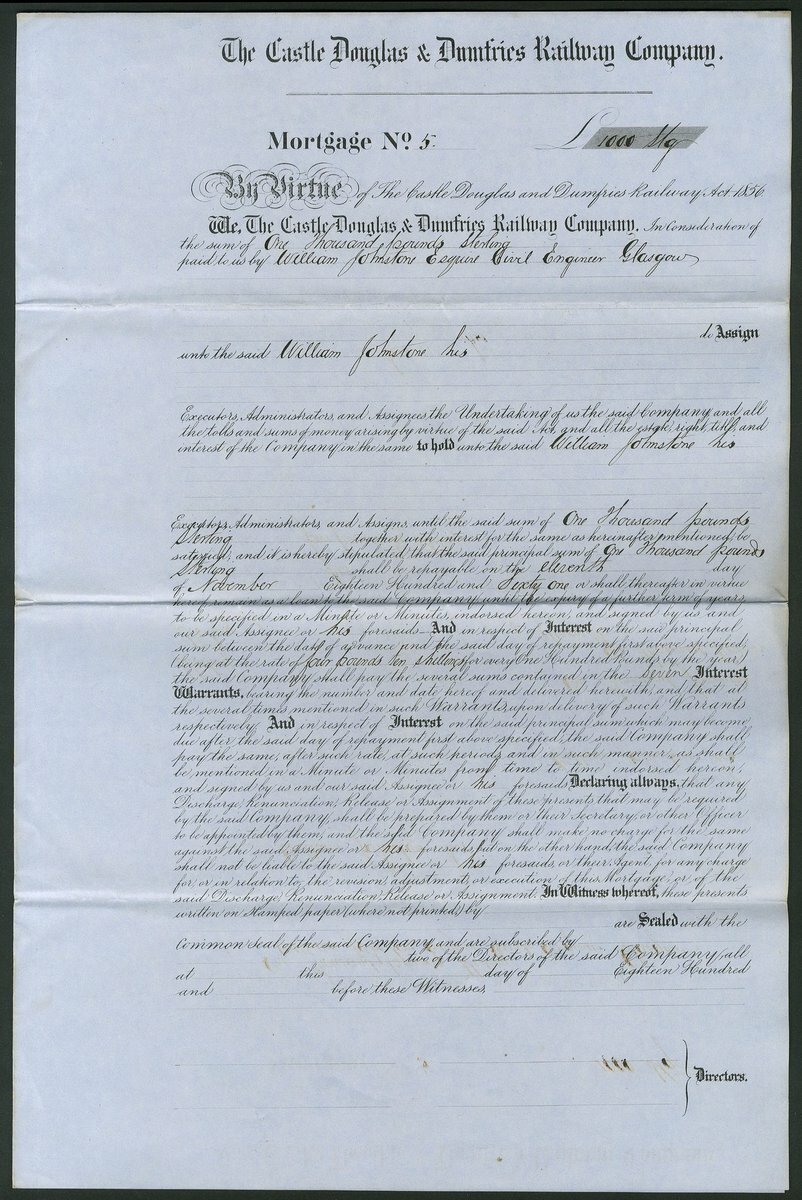 The Castle Douglas & Dumfries Railway Company.
Mortgage No 5.
£ 1000 Stg
By Virtue of The Castle Douglas and Dumfries Railway Act 1856.
We, The Castle Douglas & Dumfries Railway Company, In Consideration of
the sum of One Thousand pounds Sterling
paid to us by William Johnstone Esquire Civil Engineer Glasgow
do Assign
unto the said William Johnstone his
Executors, Administrators, and Assignees, the Undertaking of us the said Company, and all
the tolls and sums of money arising by virtue of the said Act, and all the estate, right, title, and
interest of the Company in the same to hold unto the said William Johnstone his
Executors, Administrators, and Assigns, until the said sum of One Thousand pounds
Sterling together with interest for the same as hereinafter mentioned, be
satisfied; and it is hereby stipulated, that the said principal sum of One Thousand pounds
Sterling shall be repayable on the eleventh day
of November Eighteen Hundred and Sixty one or shall thereafter in virtue
hereof remain as a loan to the said Company until the expiry of a further term of years,
to be specified in a Minute or Minutes, indorsed hereon, and signed by us and
our said Assignee or his foresaids. And in respect of Interest on the said principal
sum between the date of advance and the said day of repayment first above specified,
(being at the rate of four pounds ten shillings for every One Hundred Pounds by the year)
the said Company shall pay the several sums contained in the Seven Interest
Warrants, bearing the number and date hereof and delivered herewith, and that at
the several times mentioned in such Warrants, upon delivery of such Warrants
respectively. And in respect of Interest on the said principal sum which may become
due after the said day of repayment first above specified, the said Company shall
pay the same, after such rate, at such periods and in such manner, as shall
be mentioned in a Minute or Minutes from time to time indorsed hereon,
and signed by us and our said Assignee or his foresaids, Declaring always, that any
Discharge, Renunciation, Release or Assignment of these presents that may be required
by the said Company, shall be prepared by them or their Secretary, or other Officer
to be appointed by them, and the said Company shall make no charge for the same
against the said Assignee or his foresaids, but on the other hand, the said Company
shall not be liable to the said Assignee or his foresaids, or their Agent, for any charge
for, or in relation to, the revision, adjustment, or execution of this Mortgage, or of the
said Discharge, Renunciation, Release or Assignment. In Witness whereof, these presents
written on Stamped paper (where not printed) by
are Sealed with the
Common Seal of the said Company, and are subscribed by
two of the Directors of the said Company, all
at this day of Eighteen Hundred
and before these Witnesses,
Directors.